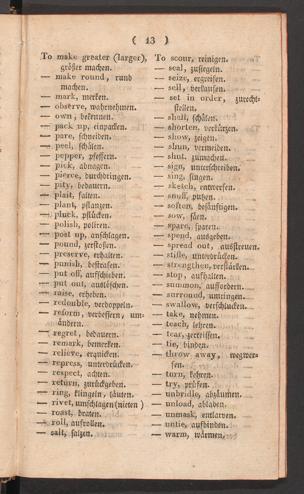 ( 13 )
To make greater (larger),
größer machen.
— make round, rund
machen.
— mark, merken.
— observe, wahrnehmen.
— own, bekennen.
— pack up, einpacken.
— pare, schneiden.
— peel, schälen.
— pepper, pfeffern.
— pick, abnagen.
— pierce, durchdringen.
— pity, bedauern.
— plait, falten.
— plant, pflanzen.
— pluck, pflücken.
— polish, poliren.
— post up, anschlagen.
— pound, zerstoßen.
— preserve, erhalten.
— punish, bestrafen.
— put off, aufschieben.
— put out, auslöschen.
— raise, erheben.
— redouble, verdoppeln.
— reform, verbessern, um-
ändern.
— regret, bedauern.
— remark, bemerken.
— relieve, erquicken.
— repress, unterdrücken.
— respect, achten.
— return, zurückgeben.
— ring, klingeln, läuten.
— rivet, umschlagen (nieten)
— roast, braten.
— roll, aufrollen.
— salt, salzen.
To scour, reinigen.
— seal, zusiegeln.
— seize, ergreifen.
— sell, verkaufen.
— set in order, zurecht-
stellen.
— shell, schälen.
— shorten, verkürzen.
— show, zeigen.
— shun, vermeiden.
— shut, zumachen.
— sign, unterschreiben.
— sing, singen.
— sketch, entwerfen.
— snuff, putzen.
— soften, besänftigen.
— sow, säen.
— spare, sparen.
— spend, ausgeben.
— spread out, ausstreuen.
— stifle, unterdrücken.
— strengthen, verstärken.
— stop, aufhalten.
— summon, auffordern.
— surround, umringen.
— swallow, verschlucken.
— take, nehmen.
— teach, lehren.
— tear, zerreissen.
— tie, binden.
— throw away, wegwer-
fen.
— turn, kehren.
— try, prüfen.
— unbridle, abzäumen.
— unload, abladen.
— unmask, entlarven.
— untie, aufbinden.
— warm, wärmen.